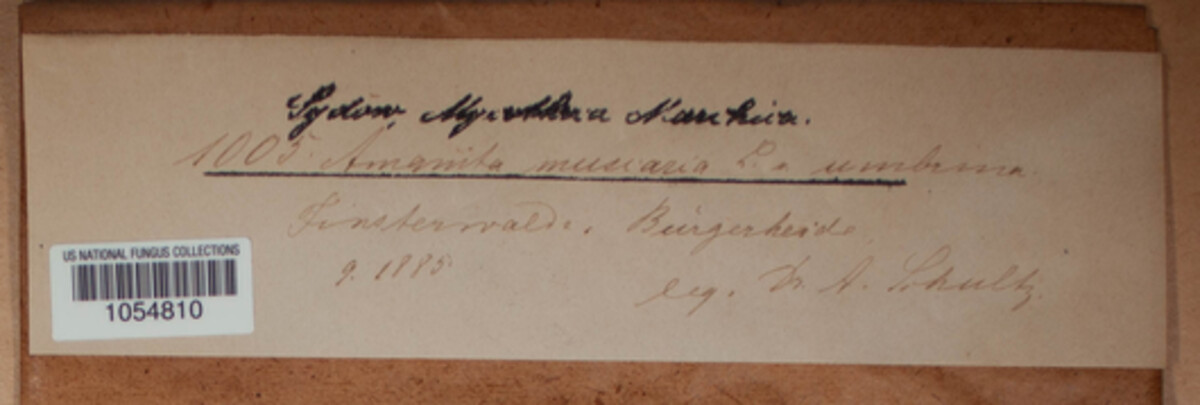 Sydow, Mycotheca Marchica.
1005. Amanita muscaria L. a umbrina.
Finsterwalde, Bürgerheide.
9. 1885
leg. Dr. A. Schultz.
US NATIONAL FUNGUS COLLECTIONS
1054810